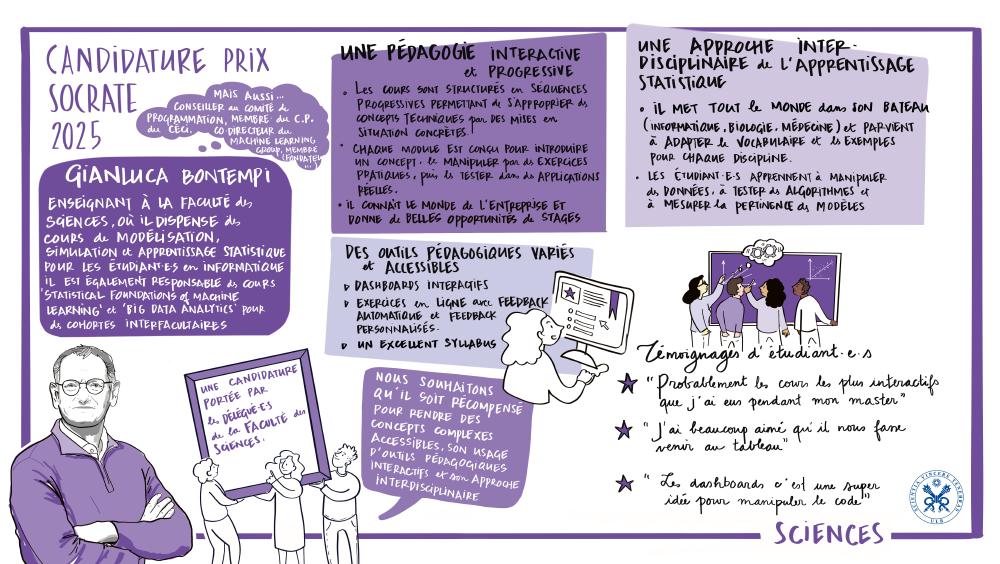 CANDIDATURE PRIX
SOCRATE
2025
MAIS AUSSI...
CONSEILLER AU COMITÉ de
PROGRAMMATION, MEMBRE du C.P.
du CECI.
CO-DIRECTEUR du
MACHINE LEARNING
GROUP, MEMBRE
(FONDATEUR
...)
GIANLUCA BONTEMPI
ENSEIGNANT À LA FACULTÉ des
SCIENCES, OÙ IL DISPENSE des
COURS de MODÉLISATION,
SIMULATION et APPRENTISSAGE STATISTIQUE
POUR LES ÉTUDIANT·ES en INFORMATIQUE
IL EST ÉGALEMENT RESPONSABLE des COURS
'STATISTICAL FOUNDATIONS of MACHINE
LEARNING' et 'BIG DATA ANALYTICS' POUR
des COHORTES INTERFACULTAIRES
UNE CANDIDATURE
PORTÉE PAR
les DÉLÉGUÉ·E·S
de la FACULTÉ des
SCIENCES.
UNE PÉDAGOGIE INTERACTIVE
et PROGRESSIVE
• LES COURS SONT STRUCTURÉS en SÉQUENCES
PROGRESSIVES PERMETTANT de S'APPROPRIER des
CONCEPTS TECHNIQUES par DES MISES en
SITUATION CONCRÈTES.
• CHAQUE MODULE EST CONÇU POUR INTRODUIRE
UN CONCEPT, le MANIPULER par des EXERCICES
PRATIQUES, puis le TESTER dans des APPLICATIONS
RÉELLES.
• IL CONNAÎT LE MONDE de L'ENTREPRISE ET
DONNE de BELLES OPPORTUNITÉS de STAGES
DES OUTILS PÉDAGOGIQUES VARIÉS
et ACCESSIBLES
▷ DASHBOARDS INTERACTIFS
▷ EXERCICES en LIGNE avec FEEDBACK
AUTOMATIQUE et FEEDBACK
PERSONNALISÉS.
▷ UN EXCELLENT SYLLABUS
NOUS SOUHAITONS
QU'IL SOIT RÉCOMPENSÉ
POUR RENDRE DES
CONCEPTS COMPLEXES
ACCESSIBLES, SON USAGE
D'OUTILS PÉDAGOGIQUES
INTERACTIFS et son APPROCHE
INTERDISCIPLINAIRE
UNE APPROCHE INTER-
DISCIPLINAIRE de L'APPRENTISSAGE
STATISTIQUE
• IL MET TOUT le MONDE dans SON BATEAU
(INFORMATIQUE, BIOLOGIE, MÉDECINE) et PARVIENT
à ADAPTER le VOCABULAIRE et les EXEMPLES
POUR CHAQUE DISCIPLINE.
• LES ÉTUDIANT·E·S APPRENNENT À MANIPULER
des DONNÉES, à TESTER des ALGORITHMES et
à MESURER la PERTINENCE des MODÈLES
Témoignages d'étudiant·e·s
"Probablement les cours les plus interactifs
que j'ai eus pendant mon master"
"J'ai beaucoup aimé qu'il nous fasse
venir au tableau"
"Les dashboards c'est une super
idée pour manipuler le code"
SCIENTIA VINCERE TENEBRAS
ULB
SCIENCES